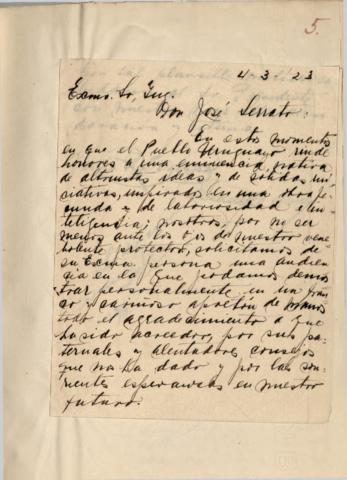 5.
4-3-23
Exmo. Sr. Ing.
Don José Serrato:
En estos momentos
en que el Pueblo Uruguayo rinde
honores a una eminencia nativa
de altruistas ideas y de sólidas ini
ciativas, inspirado en una obra fe
cunda y de laboriosidad e in
teligencia; nosotros, por no ser
menos ante los ojos de nuestro vene
volente protector, solicitamos de
su Exma. persona una audien
cia en la que podamos demos
trar personalmente en un fran
co y cariñoso apretón de manos
todo el agradecimiento a que
ha sido acreedor, por sus pa
ternales y alentadores consejos
que nos ha dado y por las son
rientes esperanzas en nuestro
futuro.